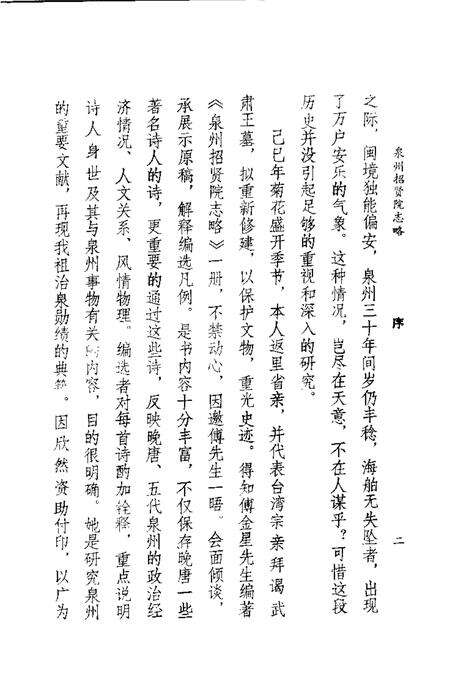 泉州招贤院志略
序
二
之际，闽境独能偏安，泉州三十年间岁仍丰稔，海舶无失坠者，出现
了万户安乐的气象。这种情况，岂尽在天意，不在人谋乎？可惜这段
历史并没引起足够的重视和深入的研究。
己巳年菊花盛开季节，本人返里省亲，并代表台湾宗亲拜谒武
肃王墓，拟重新修建，以保护文物，重光史迹。得知傅金星先生编著
《泉州招贤院志略》一册，不禁动心，因邀傅先生一晤。会面倾谈，
承展示原稿，解释编选凡例。是书内容十分丰富，不仅保存晚唐一些
著名诗人的诗，更重要的通过这些诗，反映晚唐、五代泉州的政治经
济情况、人文关系、风情物理。编选者对每首诗酌加诠释，重点说明
诗人身世及其与泉州事物有关的内容，目的很明确。她是研究泉州
的重要文献，再现我祖治泉勋绩的典籍。因欣然资助付印，以广为